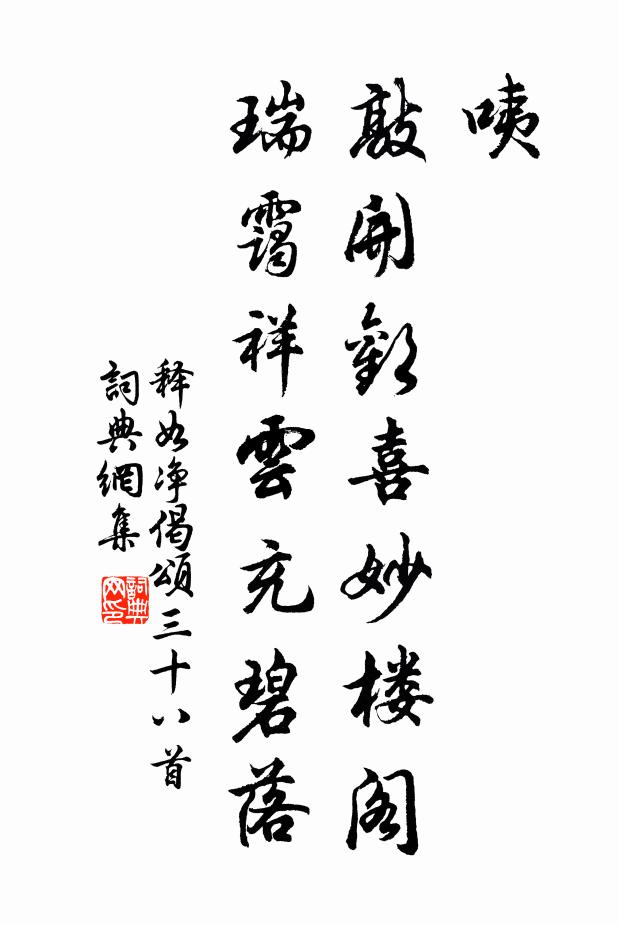 咦
敲開歡喜妙楼阁
瑞靄祥雲充碧落
释如净偈頌三十八首
詞典網集
詞典网印